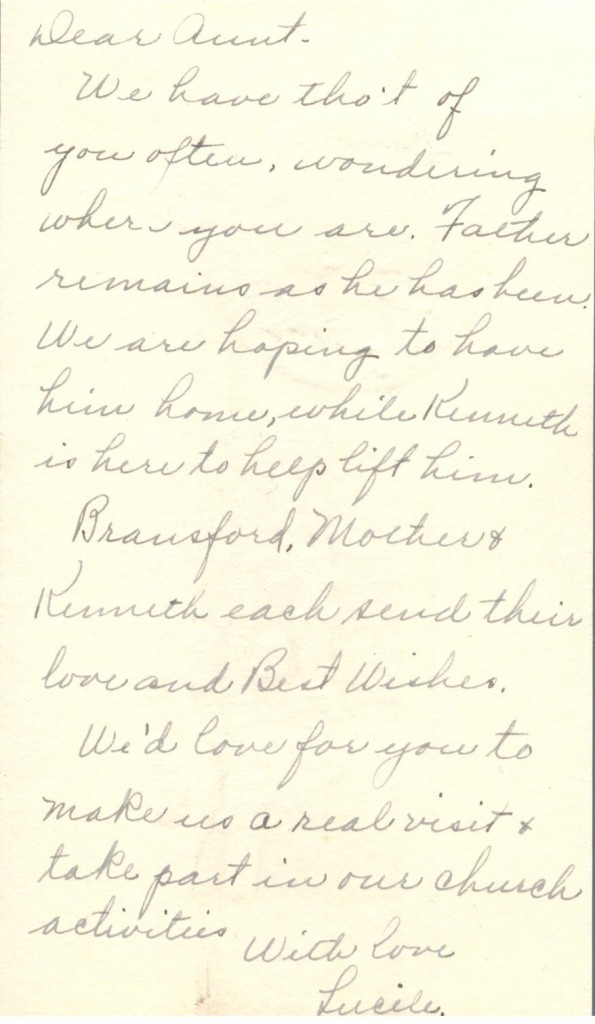 Dear Aunt-
We have tho't of
you often, wondering
where you are. Father
remains as he has been.
We are hoping to have
him home, while Kenneth
is here to help lift him.
Bransford, Mother &
Kenneth each send their
love and Best Wishes.
We'd love for you to
make us a real visit &
take part in our church
activities
With love
Lucile.